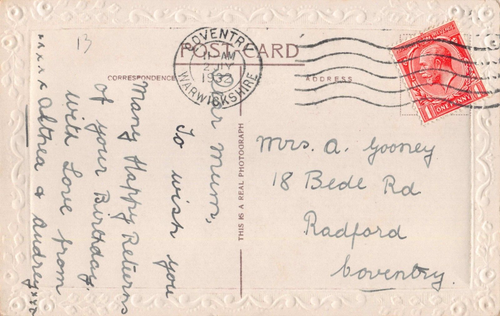 13
COVENTRY
WARWICKSHIRE
POST CARD
CORRESPONDENCE
ADDRESS
THIS IS A REAL PHOTOGRAPH
Dear Mum,
To wish you
Many Happy Returns
of your Birthday
with Love from
xxxx Altrea & Audrey xxx
Mrs. A. Gooney
18 Bede Rd
Radford
Coventry.
1 ONE PENNY 1